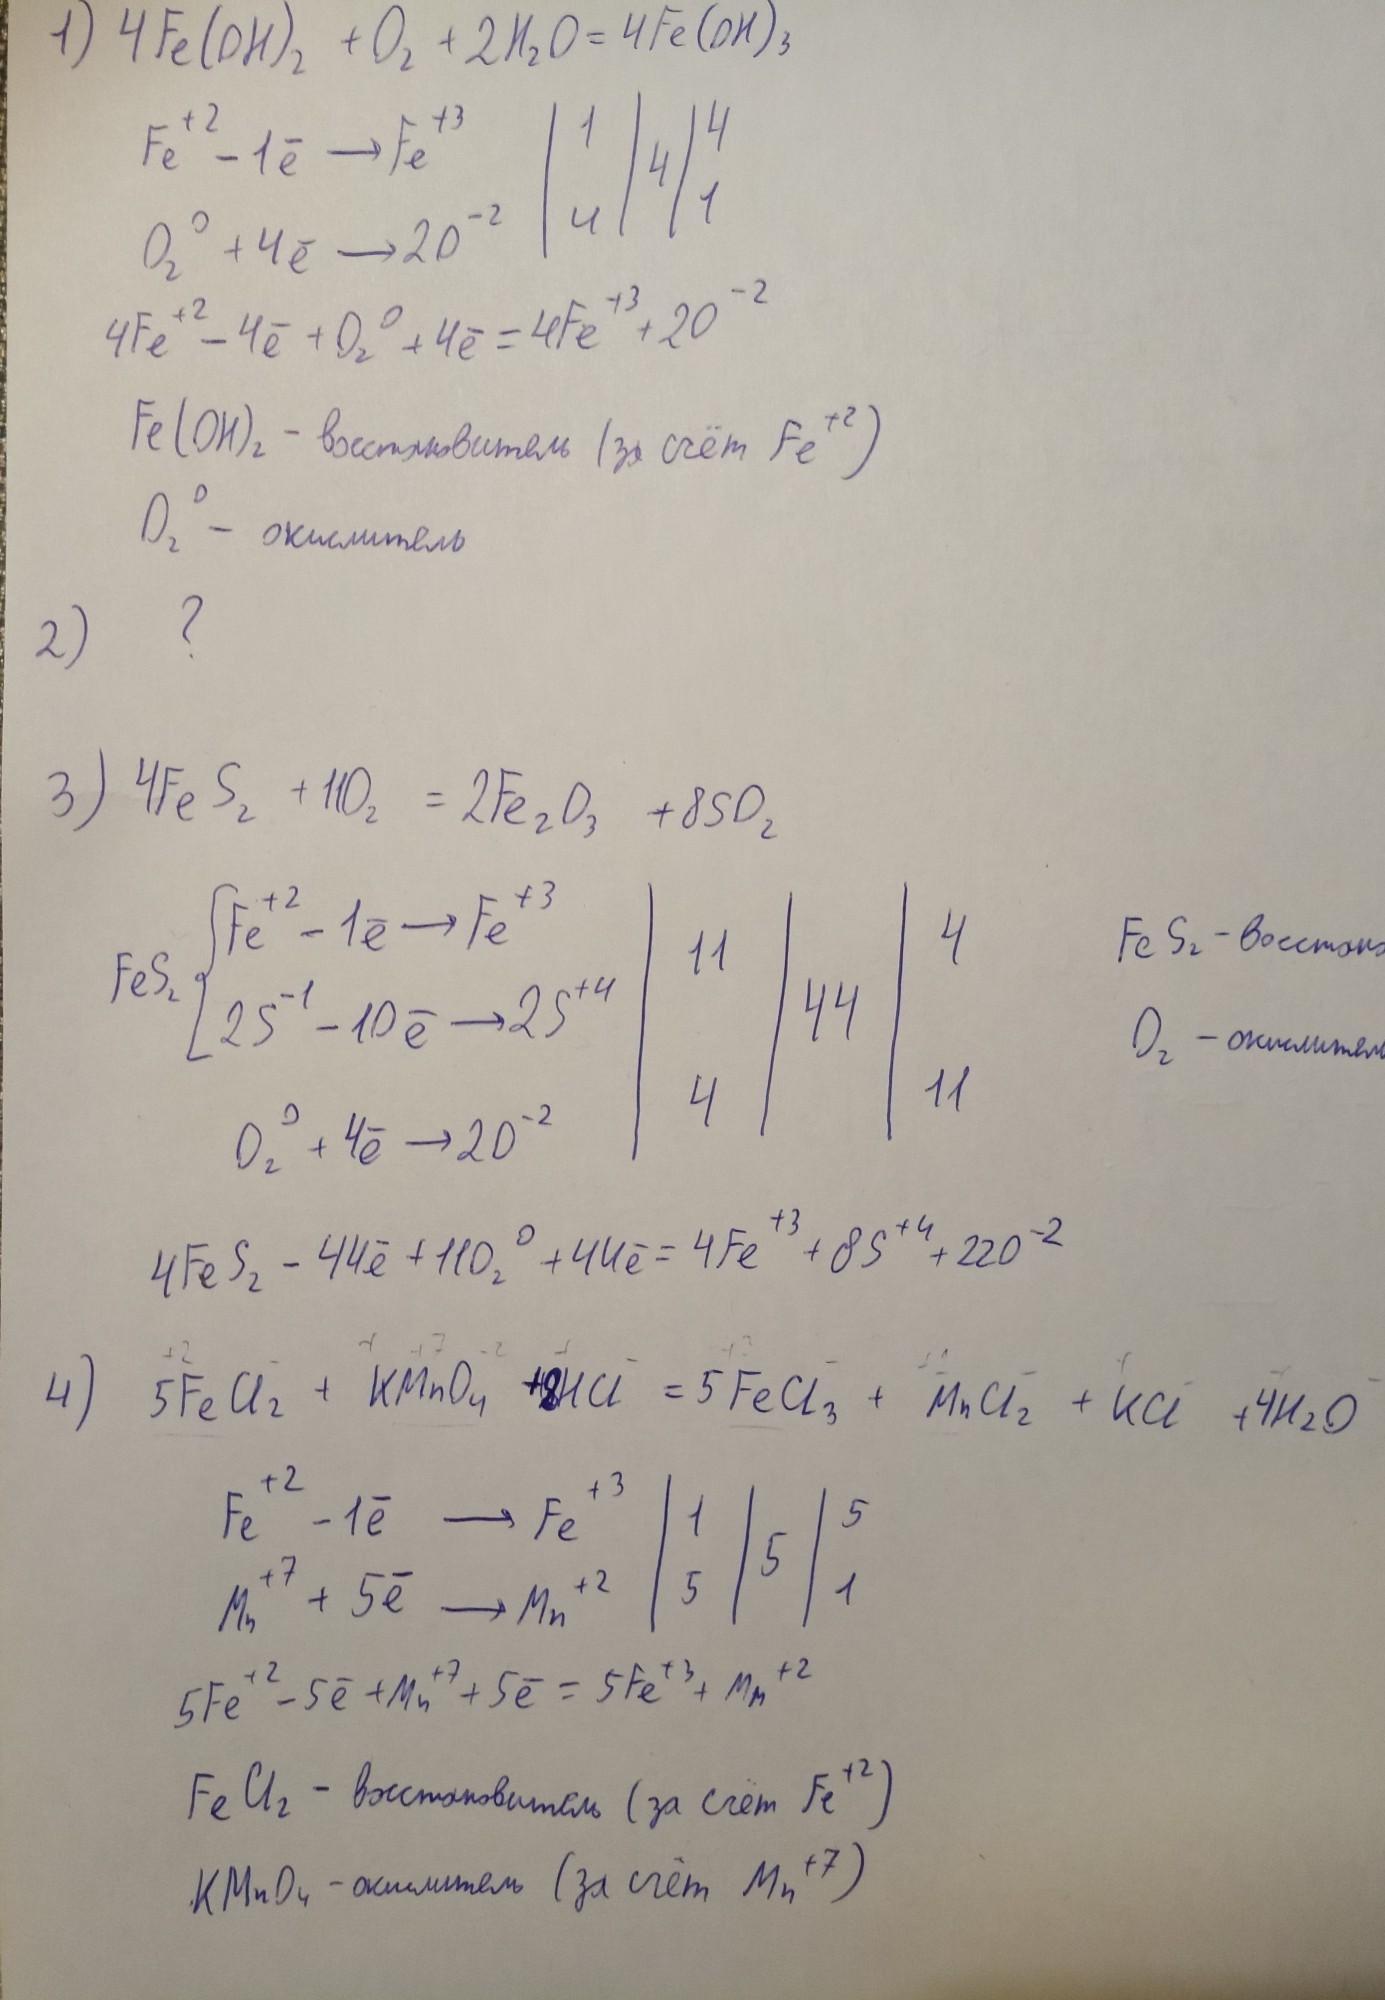 1) 4Fe(OH)₂ + O₂ + 2H₂O = 4Fe(OH)₃
Fe⁺² - 1ē → Fe⁺³ | 1 | 4 | 4
O₂⁰ + 4ē → 2O⁻² | 4 | | 1
4Fe⁺² - 4ē + O₂⁰ + 4ē = 4Fe⁺³ + 2O⁻²
Fe(OH)₂ - восстановитель (за счёт Fe⁺²)
O₂⁰ - окислитель
2) ?
3) 4FeS₂ + 11O₂ = 2Fe₂O₃ + 8SO₂
Fe⁺² - 1ē → Fe⁺³ | 11 | | 4
FeS₂
2S⁻¹ - 10ē → 2S⁺⁴ | | 44 |
O₂⁰ + 4ē → 2O⁻² | 4 | | 11
FeS₂ - восстано
O₂ - окислитель
4FeS₂ - 44ē + 11O₂⁰ + 44ē = 4Fe⁺³ + 8S⁺⁴ + 22O⁻²
4) 5FeCl₂ + KMnO₄ + 8HCl = 5FeCl₃ + MnCl₂ + KCl + 4H₂O
Fe⁺² - 1ē → Fe⁺³ | 1 | 5 | 5
Mn⁺⁷ + 5ē → Mn⁺² | 5 | | 1
5Fe⁺² - 5ē + Mn⁺⁷ + 5ē = 5Fe⁺³ + Mn⁺²
FeCl₂ - восстановитель (за счёт Fe⁺²)
KMnO₄ - окислитель (за счёт Mn⁺⁷)